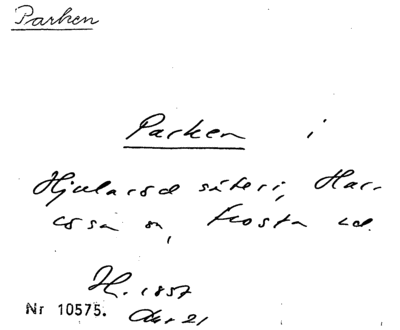 Parken
Parken i
Hjularöd säteri, Har-
lösa sn, Frosta hd.
H. 1857
Nr 10575. 21